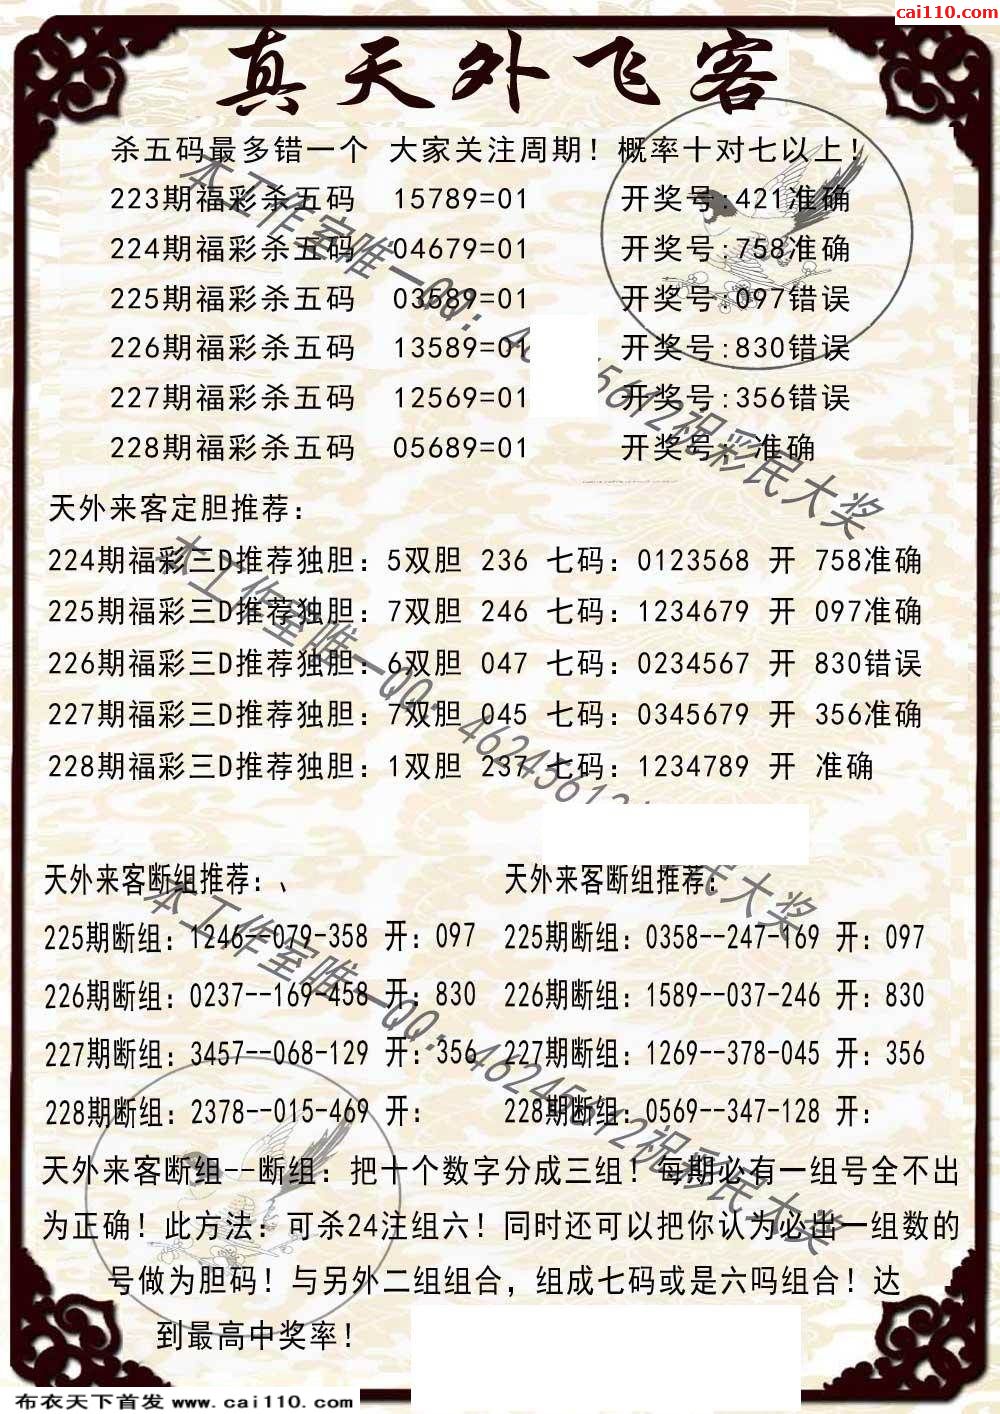 cai110.com
真天外飞客
杀五码最多错一个 大家关注周期！概率十对七以上！
223期福彩杀五码 15789=01 开奖号:421准确
224期福彩杀五码 04679=01 开奖号:758准确
225期福彩杀五码 03589=01 开奖号:097错误
226期福彩杀五码 13589=01 开奖号:830错误
227期福彩杀五码 12569=01 开奖号:356错误
228期福彩杀五码 05689=01 开奖号: 准确
天外来客定胆推荐：
224期福彩三D推荐独胆：5双胆 236 七码：0123568 开 758准确
225期福彩三D推荐独胆：7双胆 246 七码：1234679 开 097准确
226期福彩三D推荐独胆：6双胆 047 七码：0234567 开 830错误
227期福彩三D推荐独胆：7双胆 045 七码：0345679 开 356准确
228期福彩三D推荐独胆：1双胆 237 七码：1234789 开 准确
天外来客断组推荐：、 天外来客断组推荐：
225期断组：1246--079-358 开：097 225期断组：0358--247-169 开：097
226期断组：0237--169-458 开：830 226期断组：1589--037-246 开：830
227期断组：3457--068-129 开：356 227期断组：1269--378-045 开：356
228期断组：2378--015-469 开： 228期断组：0569--347-128 开：
天外来客断组--断组：把十个数字分成三组！每期必有一组号全不出
为正确！此方法：可杀24注组六！同时还可以把你认为必出一组数的
号做为胆码！与另外二组组合，组成七码或是六吗组合！达
到最高中奖率！
本工作室唯一QQ：46245612祝彩民大奖
布衣天下首发 www.cai110.com